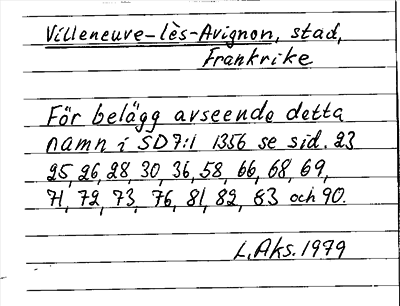 Villeneuve-lès-Avignon, stad,
Frankrike
För belägg avseende detta
namn i SD7:1 1356 se sid. 23
25, 26, 28, 30, 36, 58, 66, 68, 69,
71, 72, 73, 76, 81, 82, 83 och 90.
L. Aks. 1979